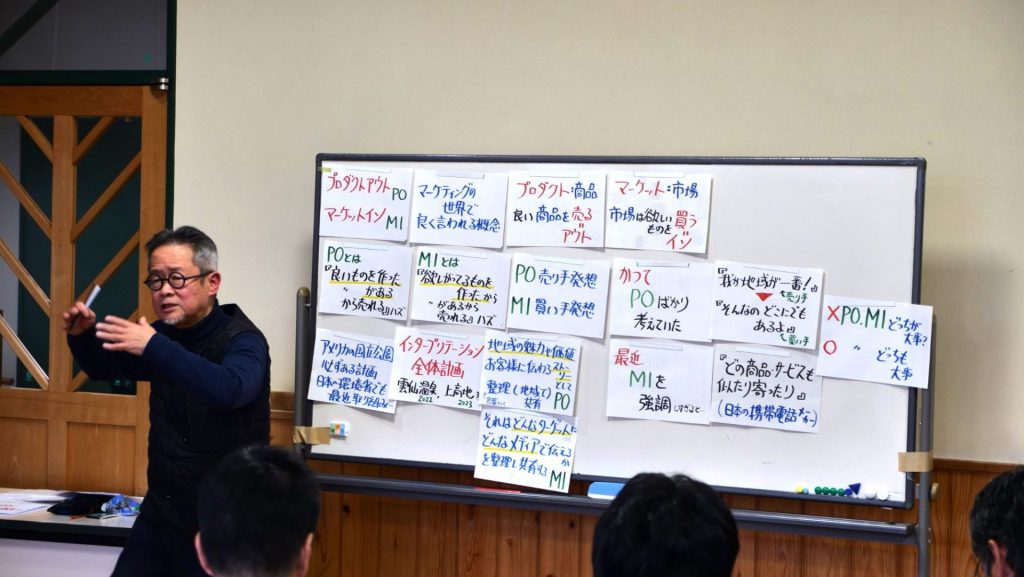 プロダクトアウト PO
マーケットイン MI
マーケティングの
世界で
良く言われる概念
プロダクト:商品
良い商品を売る
アウト
マーケット:市場
市場は欲しい
ものを 買う
イン
POとは
『良いものを作った
〃がある
から売れる』ハズ
MIとは
『欲しがってるものを
作ったから
〃があるから
売れる』ハズ
PO 売り手発想
MI 買い手発想
かつて
POばかり
考えていた
『我が地域が一番!』
売り手
『そんなのどこにでも
あるよ』
買い手
×PO.MI どっちが
大事?
○ 〃 どっちも
大事
アメリカの国立公園
必ずある計画
日本の環境省でも
最近取り組み
インタープリテーション
全体計画
雲仙温泉 上高地
2022 2023
地域の魅力や価値
お客様に伝わる
ストーリーとして
整理し(地域で)
共有 PO
それはどんなターゲットに
どんなメディアで伝えるか
を整理し共有する
MI
最近
MIを
強調しすぎ
『どの商品・サービスも
似たり寄ったり』
(日本の携帯電話メーカー)